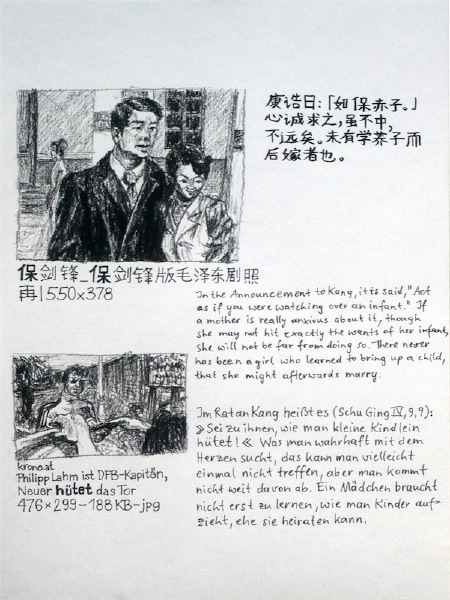 康诰曰:「如保赤子。」
心诚求之,虽不中,
不远矣。未有学养子而
后嫁者也。
保剑锋_保剑锋版毛泽东剧照
再|550×378
In the Announcement to Kang, it is said, "Act
as if you were watching over an infant." If
a mother is really anxious about it, though
she may not hit exactly the wants of her infant,
she will not be far from doing so. There never
has been a girl who learned to bring up a child,
that she might afterwards marry.
Im Ratan Kang heißt es (Schu Ging IV, 9,9):
»Sei zu ihnen, wie man kleine Kindlein
hütet!« Was man wahrhaft mit dem
Herzen sucht, das kann man vielleicht
einmal nicht treffen, aber man kommt
nicht weit davon ab. Ein Mädchen braucht
nicht erst zu lernen, wie man Kinder auf-
zieht, ehe sie heiraten kann.
krone.at
Philipp Lahm ist DFB-Kapitän,
Neuer hütet das Tor
476×299-188KB-jpg